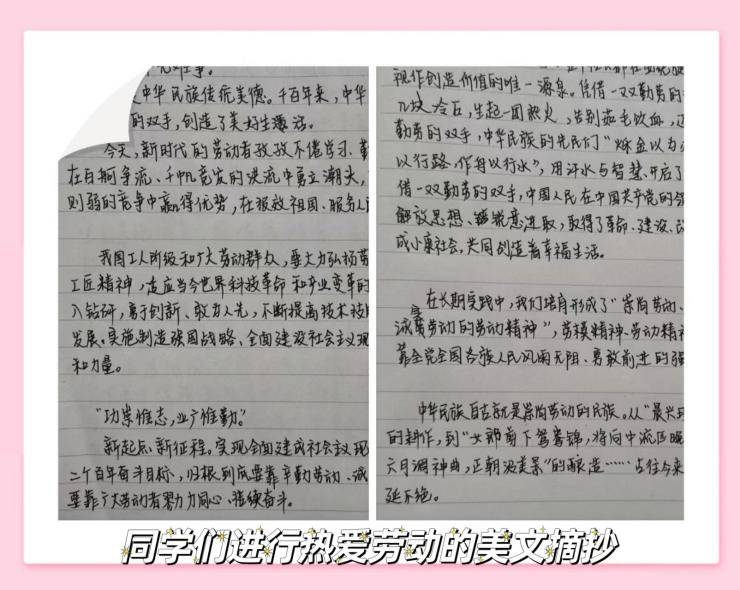 中华民族传统美德。千百年来，中华
的双手，创造了美好生活。
今天，新时代的劳动者孜孜不倦学习、勤
在百舸争流、千帆竞发的洪流中勇立潮头，
则弱的竞争中赢得优势，在报效祖国、服务人
我国工人阶级和广大劳动群众，要大力弘扬劳
工匠精神，适应当今世界科技革命和产业变革的
入钻研，勇于创新、敢为人先，不断提高技术技
发展、实施制造强国战略、全面建设社会主义现
和力量。
“功崇惟志，业广惟勤。”
新起点新征程。实现全面建成社会主义现
二个百年奋斗目标，归根到底要靠辛勤劳动、诚
要靠广大劳动者勠力同心、接续奋斗。
视作创造价值的唯一源泉。凭借一双勤劳的
几块冷石，生起一团热火，告别茹毛饮血，
勤劳的双手，中华民族的先民们“烁金以为
以行路，作舟以行水”，用汗水与智慧，开启了
借一双勤劳的双手，中国人民在中国共产党的领
解放思想、锐意进取，取得了革命、建设、改
成小康社会，共同创造着幸福生活。
在长期实践中，我们培育形成了“崇尚劳动、
诚实劳动的劳动精神”，劳模精神、劳动精神
靠全党全国各族人民风雨无阻、勇敢前进的强
中华民族自古就是崇尚劳动的民族。从“晨兴
的耕作，到“女郎剪下鸳鸯锦，将向中流匹晚
六月调神曲，正朝汲美泉”的酿造……古往今来
延不绝。
同学们进行热爱劳动的美文摘抄